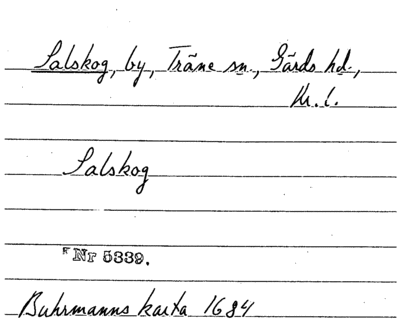 Salskog, by, Träne sn., Gärds hd.,
Kr. l.
Salskog
Nr 5339.
Buhrmanns karta 1684